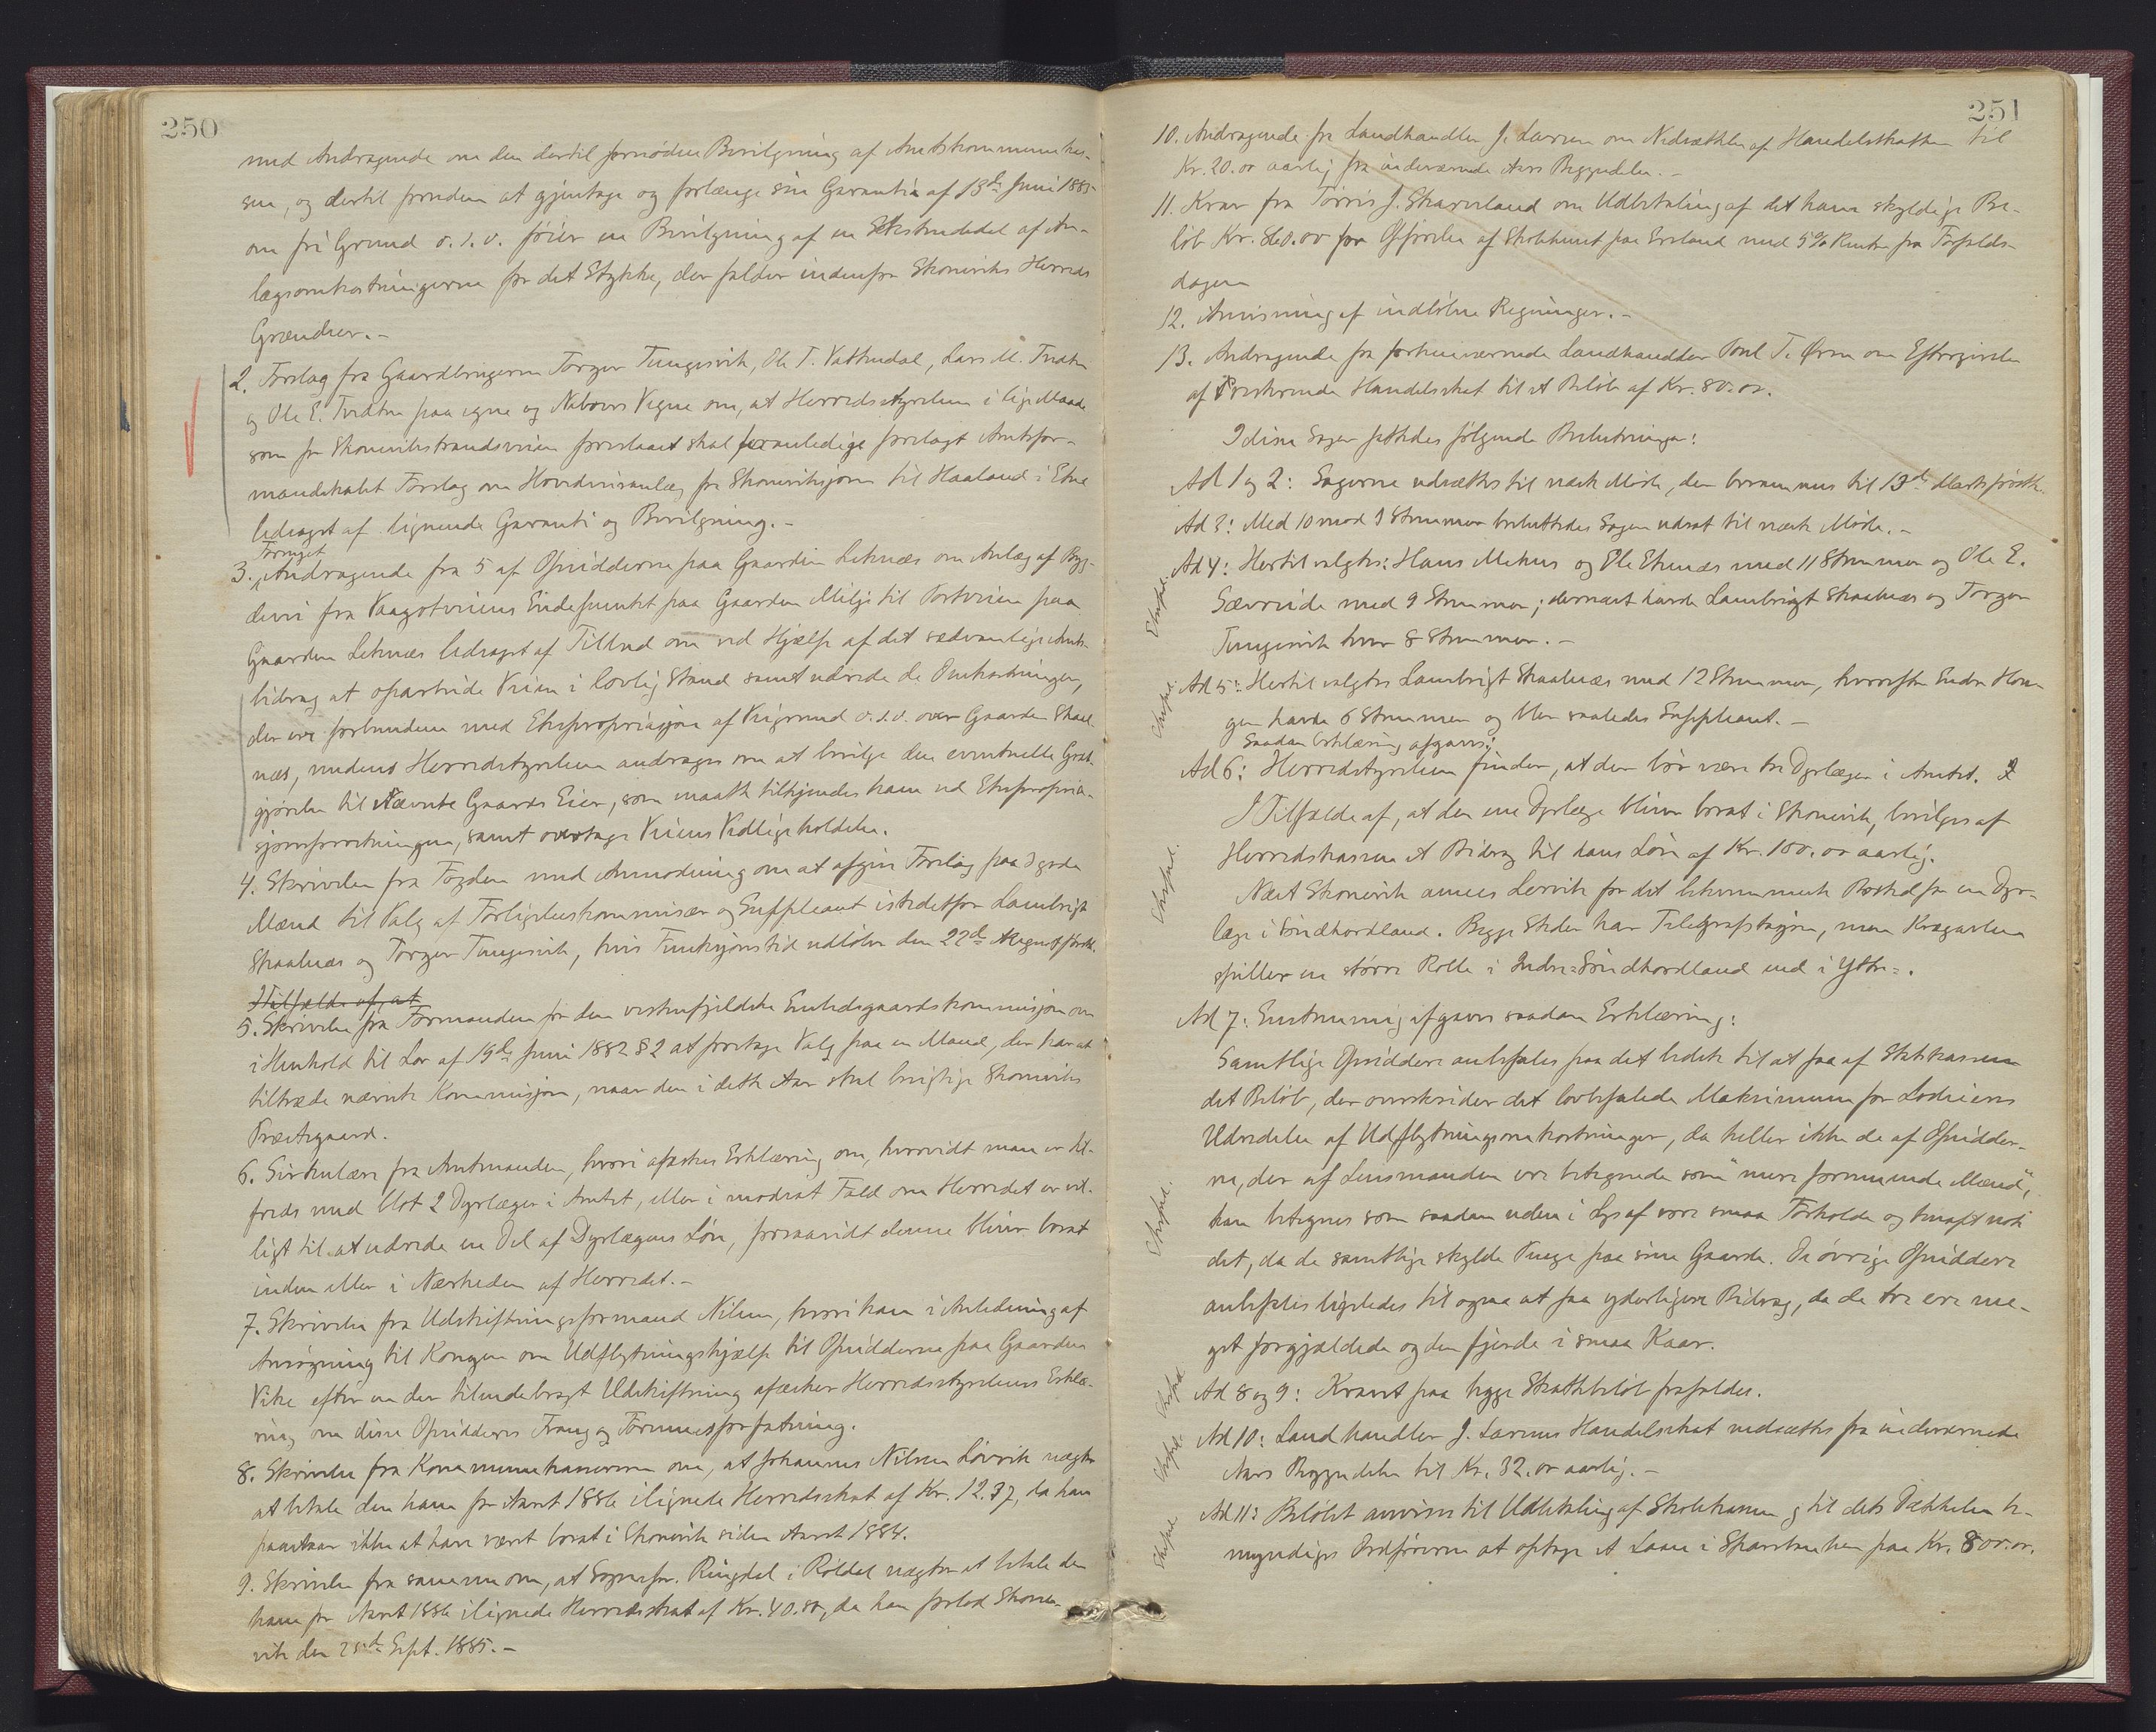 250
med Andragende om den dertil fornødne Bevilgning af Amtskommunekas-
sen, og dertil foruden at gjentage og forlænge sin Garantia af 13de Juni 1885
om fri Grund o.s.v. føier en Bevilgning af en Sekstendedel af An-
lægsomkostningerne for det Stykke, der falder indenfor Skoneviks Herreds
Grændser.-
2. Forslag fra Gaardbrugerne Torger Tungesvik, Ole T. Vattendal, Lars M. Tvedten
og Ole E. Tvedten paa egne og Naboers Vegne om, at Herredsstyrelsen i lige Maade
som for Skonevikstrandsveien foreslaaet skal foranledige forelagt Amtsfor-
mandskabet Forslag om Hovedveisanlæg fra Skonevikssjøen til Haaland i Etne
ledsaget af lignende Garanti og Bevilgning.-
Fornyet
3. Andragende fra 5 af Opsidderne paa Gaarden Leknæs om Anlæg af Byg-
devei fra Vaagotveiens Endepunkt paa Gaarden Milje til Postveien paa
Gaarden Leknæs ledsaget af Tilbud om ved Hjælp af det sædvanlige Amts-
bidrag at oparbeide Veien i lovlig Stand samt udrede de Omkostninger,
der ere forbundne med Ekspropriasjon af Veigrund o.s.v. over Gaarden Skaal-
næs, medens Herredsstyrelsen andrages om at bevilge den eventuelle Godt-
gjørelse til Nævnte Gaards Eier, som maatte tilkjendes ham ved Ekspropria-
sjonsforretningen, samt overtage Veiens Vedligeholdelse.
4. Skrivelse fra Fogden med Anmodning om at afgive Forslag paa dygtige
Mænd til Valg af Forligelseskommissær og Suppleant istedetfor Lambrigt
Skaalnæs og Torger Tungesvik, hvis Funksjonstid udløber den 22de August førstk.
I Tilfælde af, at
5. Skrivelse fra Formanden for den vestenfjeldske Embedsgaardskommisjon om
i Henhold til Lov af 19de Juni 1882 § 2 at foretage Valg paa en Mand, der har at
tiltræde nævnte Kommisjon, naar den i dette Aar skal besigtige Skoneviks
Præstegaard.
6. Sirkulære fra Amtmanden, hvori afæskes Erklæring om, hvorvidt man er til-
freds med blot 2 Dyrlæger i Amtet, eller i modsat Fald om Herredet er vil-
ligt til at udrede en Del af Dyrlægens Løn, forsaavidt denne bliver bosat
inden eller i Nærheden af Herredet.-
7. Skrivelse fra Udskiftningsformand Nilsen, hvori han i Anledning af
Ansøgning til Kongen om Udflytningshjælp til Opsidderne paa Gaarden
Vike efter en der tilendebragt Udskiftning afæsker Herredsstyrelsens Erklæ-
ring om disse Opsidderes Trang og Formuesforfatning.
8. Skrivelse fra Kommunekasereren om, at Johannes Nilsen Løvvik nægter
at betale den ham for Aaret 1886 ilignede Herredsskat af Kr. 12.37, da han
paastaar ikke at have været bosat i Skonevik siden Aaret 1884.
9. Skrivelse fra samme om, at Sognepr. Ringdal i Røldal nægter at betale den
ham for Aaret 1886 ilignede Herredsskat af Kr. 40.80, da han forlod Skone-
vik den 25de Sept. 1885.-
251
10. Andragende fra Landhandler J. Larsen om Nedsættelse af Handelsskatten til
Kr. 20.00 aarlig fra indeværende Aars Begyndelse.-
11. Krav fra Tørris J. Skaveland om Udbetaling af det ham skyldige Be-
løb Kr. 860.00 for Opførelse af Skolehuset paa Eveland med 5% Renter fra Forfalds-
dagen
12. Anvisning af indløbne Regninger.-
13. Andragende fra forhenværende Landhandler Poul T. Ørn om Eftergivelse
af Resterende Handelsskat til et Beløb af Kr. 80.00.
I disse Sager fattedes følgende Beslutninger:
Ad 1 og 2: Sagerne udsættes til næste Møde, der berammes til 13de Marts førstk.
Ad 3: Med 10 mod 9 Stemmer besluttedes Sagen udsat til næste Møde.-
Ad 4: Hertil valgtes: Hans Mehus og Ole Etnæs med 11 Stemmer og Ole E.
Sævreide med 9 Stemmer; dernæst havde Lambrigt Skaalnæs og Torger
Tungesvik hver 8 Stemmer.-
Ekspd.
Ad 5: Hertil valgtes Lambrigt Skaalnæs med 12 Stemmer, hvorefter Endre Hau-
gen havde 6 Stemmer og blev saaledes Suppleant.-
Ekspd.
Saadan Erklæring afgaves:
Ad 6: Herredsstyrelsen finder, at der bør være tre Dyrlæger i Amtet.
I Tilfælde af, at den ene Dyrlæge bliver bosat i Skonevik, bevilges af
Herredskassen et Bidrag til hans Løn af Kr. 100.00 aarlig.
Ekspd.
Næst Skonevik ansees Lervik for det bekvemmeste Bosted for en Dyr-
læge i Søndhordland. Begge Steder har Telegrafstasjon, men Kvægavlen
spiller en større Rolle i Indre-Søndhordland end i Ydre-.
Ad 7: Enstemmig afgaves saadan Erklæring:
Samtlige Opsiddere anbefales paa det bedste til at faa af Statskassen
det Beløb, der overskrider det lovbefalede Maksimum for Lodeiers
Udredelse af Udflytningsomkostninger, da heller ikke de af Opsidder-
ne, der af Lensmanden ere betegnede som "mere formuende Mænd",
kan betegnes som saadan uden i Lys af vore smaa Forholde og knapt nok
Ekspd.
det, da de samtlige skylde Penge paa sine Gaarde. De øvrige Opsiddere
anbefales ligeledes til ogsaa at faa yderligere Bidrag, da de tre ere me-
get forgjældede og den fjerde i smaa Kaar.
Ad 8 og 9: Kravet paa begge Skattebeløb frafaldes.
Ekspd.
Ad 10: Landhandler J. Larsens Handelsskat nedsættes fra indeværende
Aars Begyndelse til Kr. 32.00 aarlig.-
Ekspd.
Ad 11: Beløbet anvises til Udbetaling af Skolekassen og til dets Dækkelse be-
myndiges Ordføreren at optage et Laan i Sparebanken paa Kr. 800.00.
Ekspd.